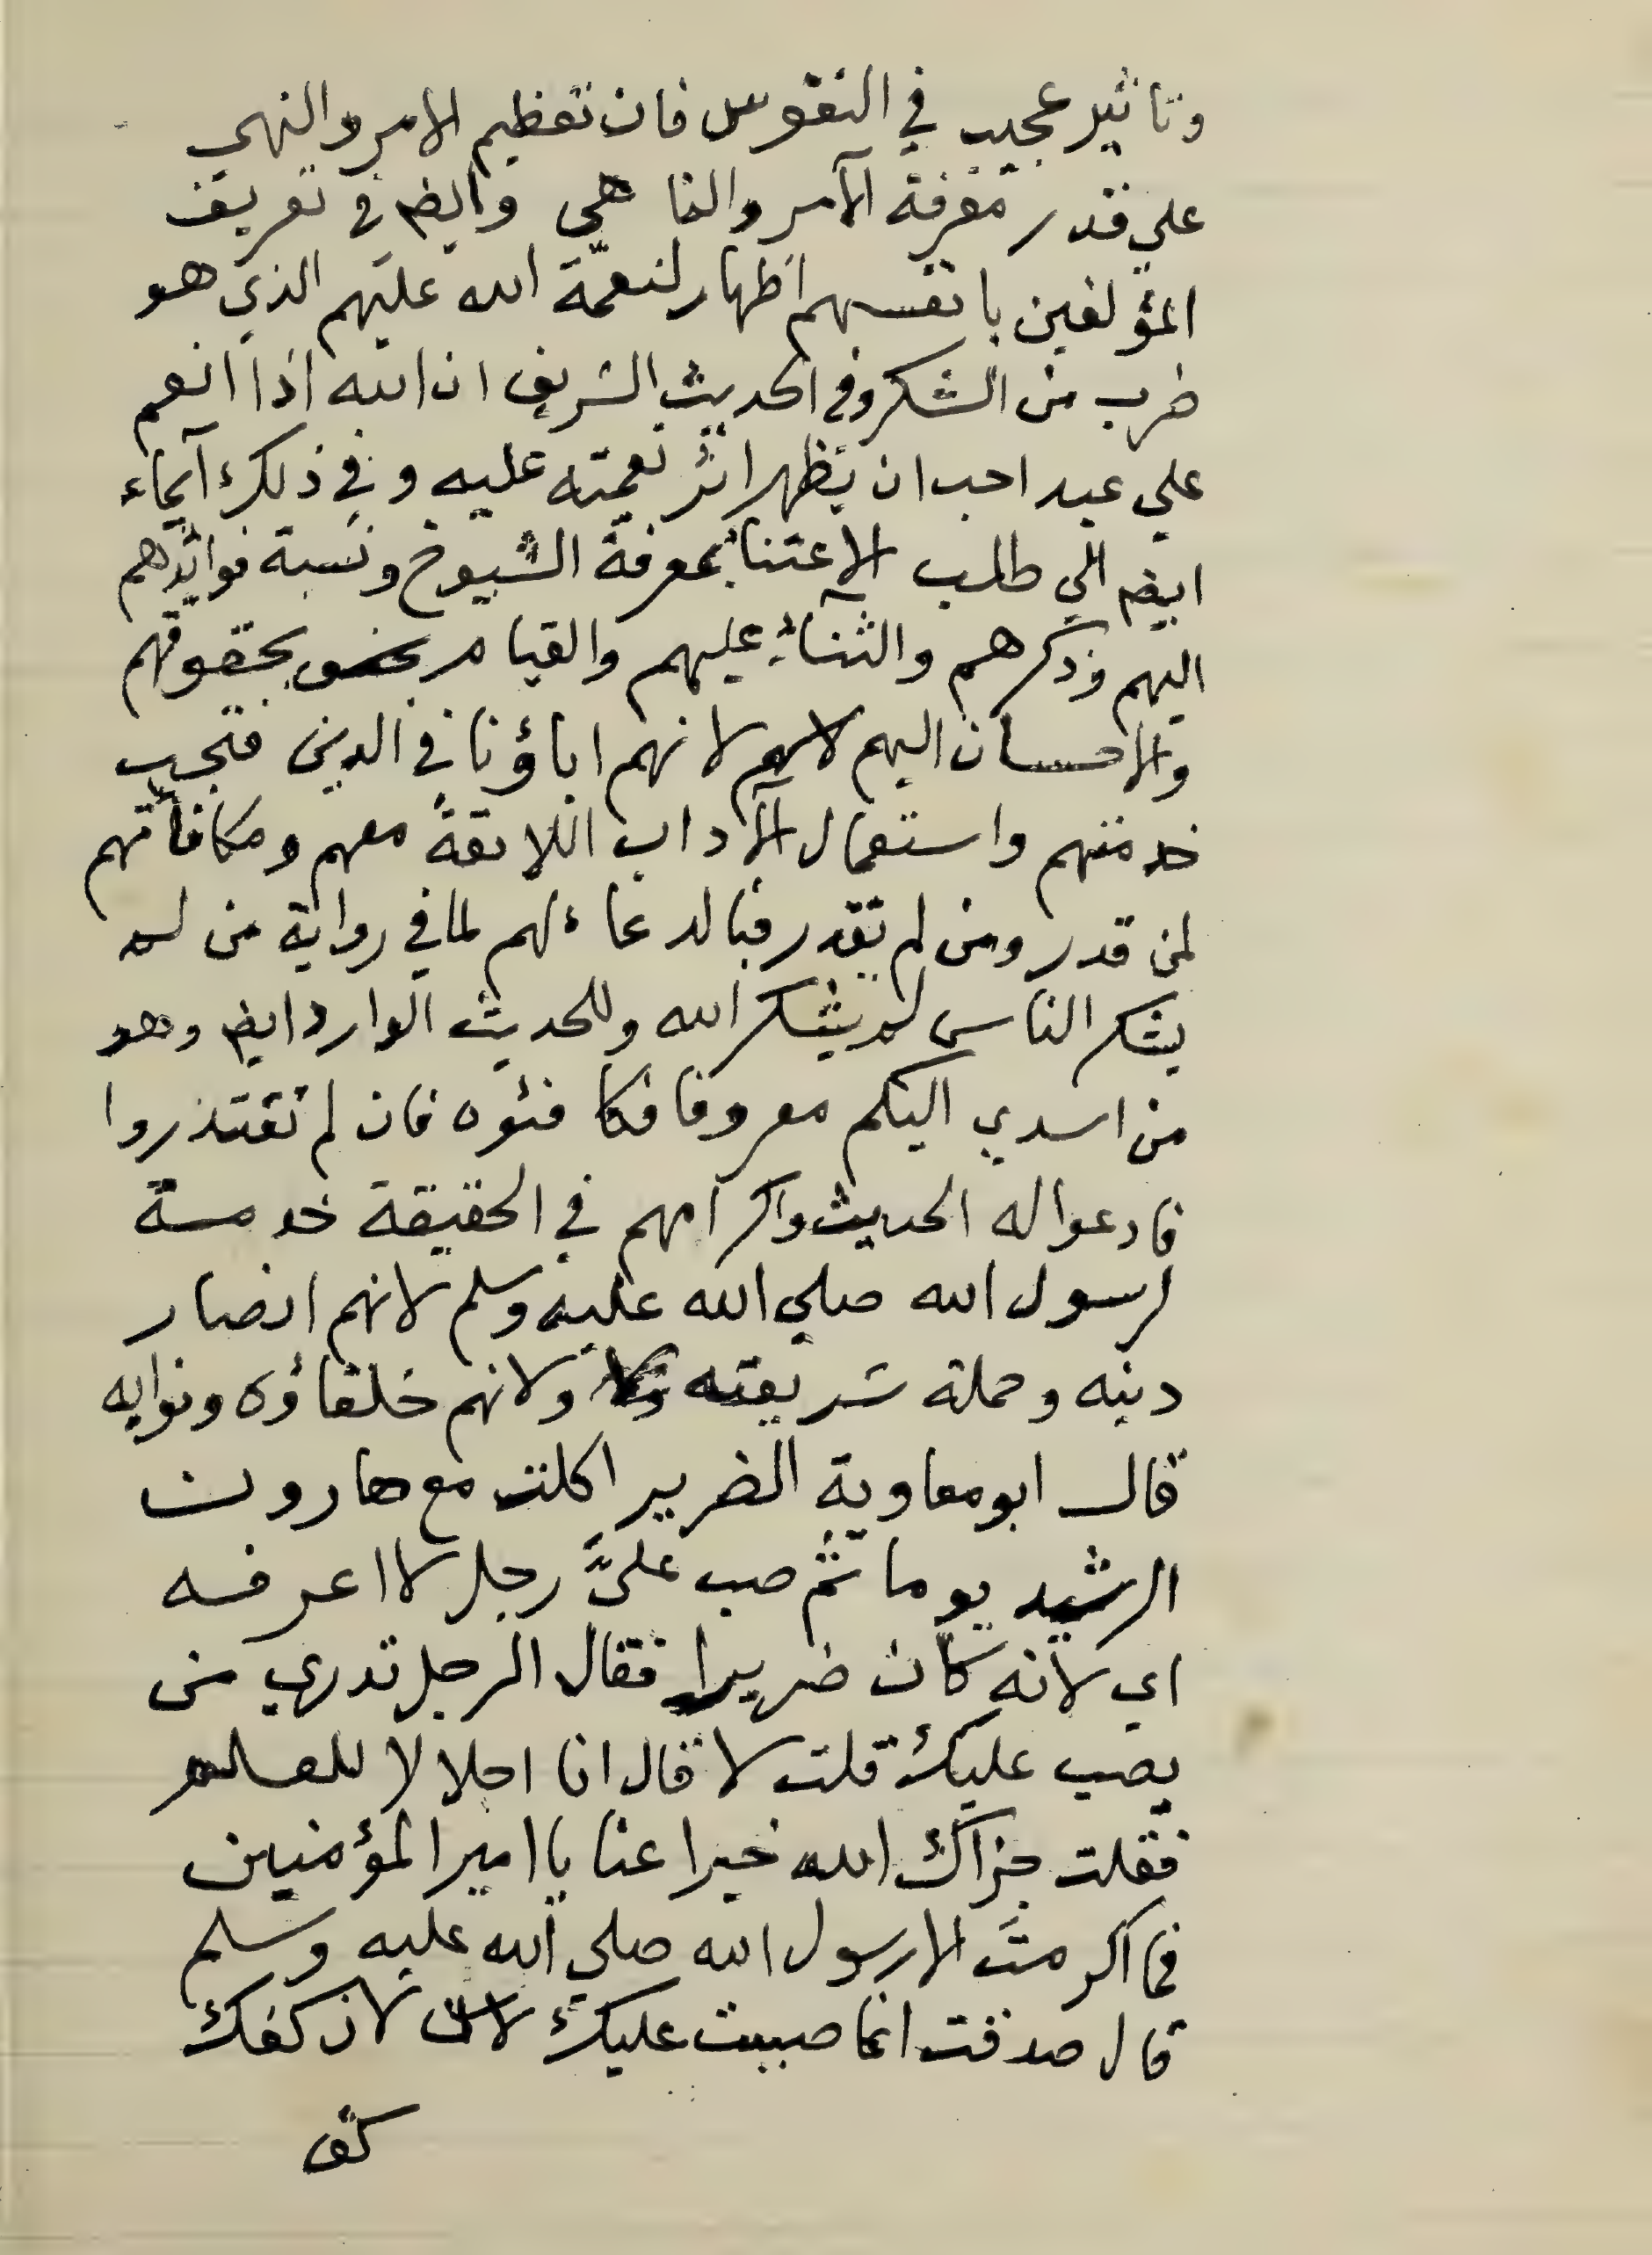 وتاثير عجيب في النفوس فان تعظيم الامر والنهي
علي قدر معرفة الآمر والناهي وايض في تعريف
المؤلفين بانفسهم اظهار لنعمة الله عليهم الذي هو
ضرب من الشكر وفي الحديث الشريف ان الله اذا انعم
علي عبد احب ان يظهر اثر نعمته عليه وفي ذلك ايماء
ايض الي طلب الاعتناء بمعرفة الشيوخ ونسبة فوائدهم
اليهم وذكرهم والثناء عليهم والقيام بحقوقهم
والاحسان اليهم لانهم اباؤنا في الدين فتجب
خدمتهم واستعمال الآداب اللائقة معهم ومكافأتهم
لمن قدر ومن لم يقدر فبالدعاء لهم لما في رواية من لم
يشكر الناس لم يشكر الله وللحديث الوارد ايض وهو
من اسدي اليكم معروفا فكافئوه فان لم تقتدروا
فادعوا له الحديث واكرامهم في الحقيقة خدمة
لرسول الله صلي الله عليه وسلم لانهم انصار
دينه وحملة شريعته ولانهم خلفاؤه ونوابه
قال ابو معاوية الضرير اكلت مع هارون
الرشيد يوما ثم صب عليَّ رجل لا اعرفه
اي لانه كان ضريرا فقال الرجل تدري من
يصب عليك قلت لا قال انا اجلالا للعلم
فقلت جزاك الله خيرا عنا يا امير المؤمنين
فما اكرمتَ الا رسول الله صلي الله عليه وسلم
قال صدقت انما صببت عليك لان كفك
كف